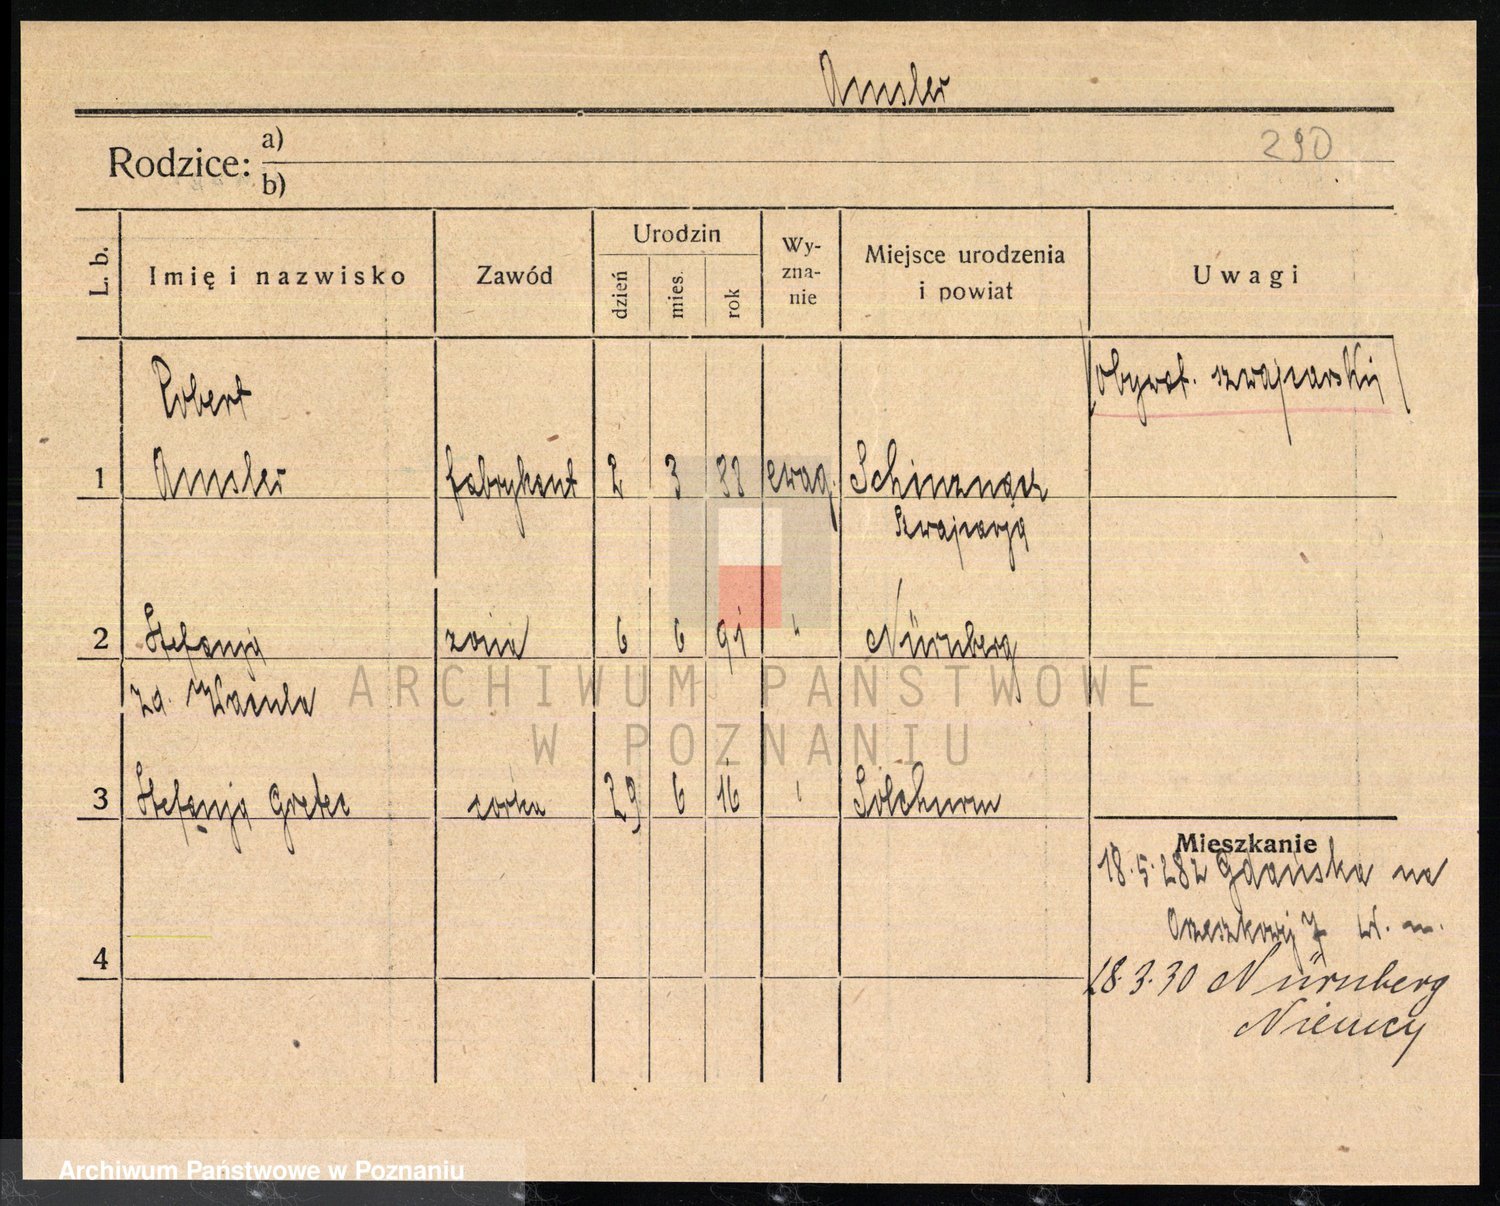 Amsler
Rodzice:
a)
b)
290
L. b.
Imię i nazwisko
Zawód
Urodzin
dzień
mies.
rok
Wy-
zna-
nie
Miejsce urodzenia
i powiat
Uwagi
Robert
obywat. szwajcarski
1 Amsler fabrykant 2 3 88 ewag. Schinznach
Szwajcarja
2 Stefanja żona 6 6 91 " Nürnberg
za.
3 Stefanja Gretec córka 29 6 16 "
Mieszkanie
18.5.28 z Gdańska na
Orzeszkowej 7 w. m.
4
18.3.30 Nürnberg
Niemcy
ARCHIWUM PAŃSTWOWE
W POZNANIU
Archiwum Państwowe w Poznaniu